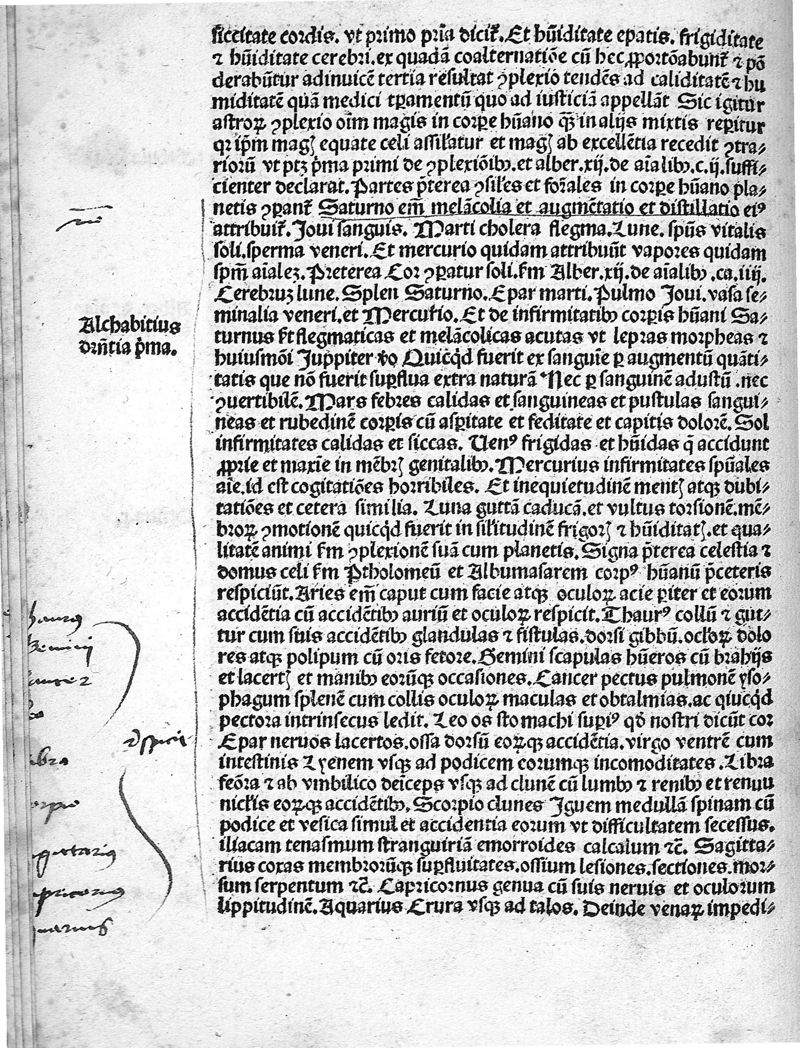 siccitate cordis. vt primo pria dicit̃. Et hũiditate epatis. frigiditate
⁊ hũiditate cerebri. ex quadã coalternatiõe cũ hec ꝓportõabunt̃ ⁊ põ
derabũtur adinuicẽ tertia resultat ꝯplexio tendẽs ad caliditatẽ ⁊ hu
miditatẽ quã medici tꝑamentũ quo ad iusticiã appellãt Sic igitur
astroꝝ ꝯplexio oĩm magis in corꝑe hũano qͣꝫ in alijs mixtis reꝑitur
qꝛ ip̃m magꝭ equate celi assil̃atur et magꝭ ab excellẽtia recedit ꝯtra⸗
rioru᷑ vt ptꝫ p̃ma primi de ꝯplexiõibꝰ. et alber. xij. de aĩalibꝰ. c. ij. suffi⸗
cienter declarat. Partes p̃terea ꝯsiles et for̃ales in corꝑe hũano pla⸗
netis ꝯꝑant̃ Saturno em̃ melãcolia et augmẽtatio et distillatio eiꝰ
attribuit̃. Joui sanguis. Marti cholera flegma. Lune. spũs vitalis
soli. sperma veneri. Et mercurio quidam attribuũt vapores quidam
spm̃ aĩalez. Preterea Cor ꝯꝑatur soli. fm Alber. xij. de aĩalibꝰ. ca. iiij.
Cerebruꝫ lune. Splen Saturno. Epar marti. Pulmo Joui. vasa se⸗
minalia veneri. et Mercurio. Et de infirmitatibꝰ corꝑis hũani Sa⸗
Alchabitius
drñtia p̃ma.
turnus hꝫ flegmaticas et melãcolicas acutas vt lepras morpheas ⁊
huiusmõi Juppiter vo Quicq̃d fuerit ex sanguĩe ꝑ augmentũ quãti⸗
tatis que nõ fuerit suꝑflua extra naturã Nec ꝑ sanguinẽ adustũ. nec
ꝯuertibilẽ. Mars febres calidas et sanguineas et pustulas sangui⸗
neas et rubedinẽ corꝑis cũ asꝑitate et feditate et capitis dolorẽ. Sol
infirmitates calidas et siccas. Uenꝰ frigidas et hũidas q̃ accidunt
ꝓprie et maxĩe in mẽbrꝭ genitalibꝰ. Mercurius infirmitates spũales
aĩe. id est cogitatiões horribiles. Et inequietudinẽ mentꝭ atqꝫ dubi⸗
tatiões et cetera similia. Luna guttã caducã. et vultus torsionẽ. mẽ⸗
broꝝ ꝯmotionẽ quicq̃d fuerit in sil̃itudinẽ frigorꝭ ⁊ hũiditatꝭ. et qua⸗
litatẽ animi fm ꝯplexionẽ suã cum planetis. Signa p̃terea celestia ⁊
domus celi fm Ptholomeũ et Albumasarem corpꝰ hũanũ p̃ceteris
respiciũt. Aries em̃ caput cum facie atqꝫ oculoꝝ acie ꝑiter et eorum
accidẽtia cũ accidẽtibꝰ auriũ et oculoꝝ respicit. Thaurꝰ collũ ⁊ gut⸗
tur cum suis accidẽtibꝰ glandulas ⁊ fistulas. dorsi gibbũ. ocl̃oꝝ dolo
res atqꝫ polipum cũ oris fetore. Gemini scapulas hũeros cũ brahijs
et lacertꝭ et manibꝰ eorũqꝫ occasiones. Cancer pectus pulmonẽ yso⸗
phagum splenẽ cum collis oculoꝝ maculas et obtalmias. ac qiucq̃d
pectora intrinsecus ledit. Leo os stomachi suꝑiꝰ qd̃ nostri dicũt cor
Epar neruos lacertos. ossa dorsũ eoꝝqꝫ accidẽtia. virgo ventrẽ cum
intestinis Lyenem vsqꝫ ad podicem eorumqꝫ incomoditates. Libra
feõra ⁊ ab vmbilico deĩceps vsqꝫ ad clunẽ cũ lumbꝰ ⁊ renibꝰ et renuu
niclis eoꝝqꝫ accidẽtibꝰ. Scorpio clunes Jguem medullã spinam cũ
podice et vesica simul et accidentia eorum vt difficultatem secessus.
iliacam tenasmum stranguiriã emorroides calcalum ⁊c̃. Sagitta⸗
rius coxas membrorũqꝫ suꝑfluitates. ossium lesiones. sectiones. mor⸗
sum serpentum ⁊c̃. Capricornus genua cũ suis neruis et oculorum
lippitudinẽ. Aquarius Crura vsqꝫ ad talos. Deinde venaꝝ impedi⸗